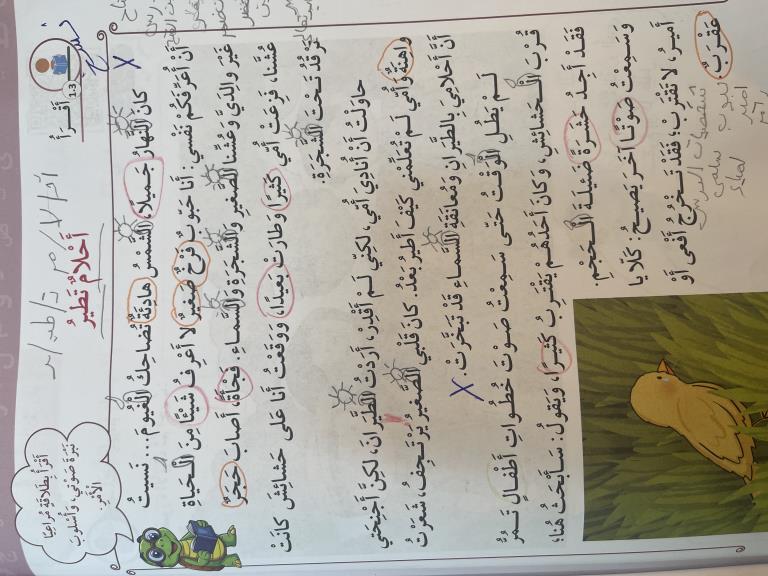 أَقْرَأُ
1.3
أَحْلامٌ تَطيرُ
أَقْرَأُ بِطَلاقَةٍ مُراعِيًا
نَبْرَةَ صَوْتي، وَأُسْلوبَ
الْأَمْرِ.
كانَ النَّهارُ جَميلًا، الشَّمْسُ هادِئَةٌ تُضاحِكُ الْغُيومَ... نَسيتُ
أَنْ أُعَرِّفَكُمْ نَفْسي: أَنا حَبّوب فَرْخٌ صَغيرٌ لا أَعْرِفُ شَيْئًا مِنَ الْحَياةِ
غَيْرَ والِدَيَّ وَعُشَّنا الصَّغيرِ وَالشَّجَرَةِ وَالسَّماءِ. فَجْأَةً، أَصابَ حَجَرٌ
عُشَّنا، فَزِعَتْ أُمّي كَثيرًا وَطارَتْ بَعيدًا، وَوَقَعْتُ أَنا عَلى حَشائِشَ كانَتْ
غُرْفَةً تَحْتَ الشَّجَرَةِ.
حاوَلْتُ أَنْ أُنادِيَ أُمّي، لكِنّي لَمْ أَقْدِرْ، أَرَدْتُ الطَّيَرانَ، لكِنَّ أَجْنِحَتي
واهِنَةٌ وَأُمّي لَمْ تُعَلِّمْني كَيْفَ أَطيرُ بَعْدُ. كانَ قَلْبي الصَّغيرُ يَرْتَجِفُ، شَعَرْتُ
أَنَّ أَحْلامِيَ بِالطَّيَرانِ وَمُعانَقَةِ السَّماءِ قَدْ تَبَخَّرَتْ.
لَمْ يَطُلِ الْوَقْتُ حَتّى سَمِعْتُ صَوْتَ خُطُواتِ أَطْفالٍ تَمُرُّ
قُرْبَ الْحَشائِشِ، وَكانَ أَحَدُهُمْ يَقْتَرِبُ كَثيرًا، وَيَقولُ: سَأَبْحَثُ هُنا؛
فَقَدْ أَجِدُ حَشَرَةً ضَئيلَةَ الْحَجْمِ.
وَسَمِعْتُ صَوْتًا آخَرَ يَصيحُ: كَلّا يا
أَميرُ، لا تَقْتَرِبْ؛ فَقَدْ تَخْرُجُ أَفْعى أَوْ
عَقْرَبٌ.